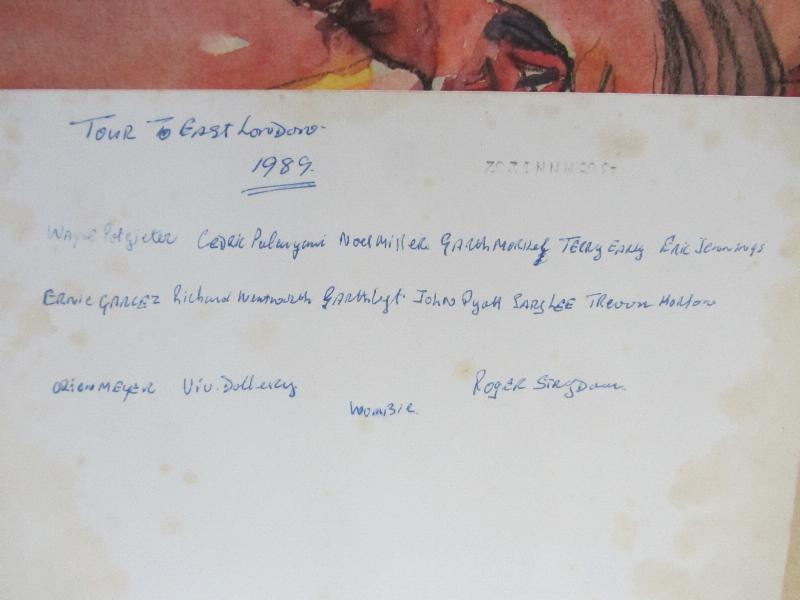 TOUR TO EAST LONDON.
1989.
Wayne Potgieter Cedric Noel Miller Garth Terry Early Eric Jennings
Ernie Garcez Richard Wentworth Garth John Pyatt Sarg Lee Trevor Horton
Orion Meyer Viv. Dollery Roger
Wombie.